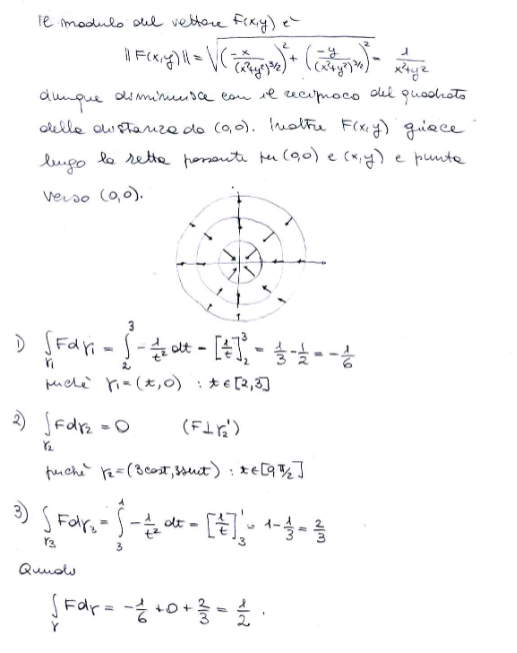 Il modulo del vettore F(x,y) è
‖F(x,y)‖ = √((-x/(x²+y²)^{3/2})² + (-y/(x²+y²)^{3/2})²) = 1/(x²+y²)
dunque diminuisce con il reciproco del quadrato
della distanza da (0,0). Inoltre F(x,y) giace
lungo la retta passante per (0,0) e (x,y) e punta
verso (0,0).
1) ∫_{γ₁} F dγ₁ = ∫_2^3 -1/t² dt = [1/t]_2^3 = 1/3 - 1/2 = -1/6
perché γ₁=(t,0) : t∈[2,3]
2) ∫_{γ₂} F dγ₂ = 0 (F⊥γ₂')
perché γ₂=(3cost,3sint) : t∈[0,π/2]
3) ∫_{γ₃} F dγ₃ = ∫_3^1 -1/t² dt = [1/t]_3^1 = 1 - 1/3 = 2/3
Quindi
∫_γ F dγ = -1/6 + 0 + 2/3 = 1/2 .